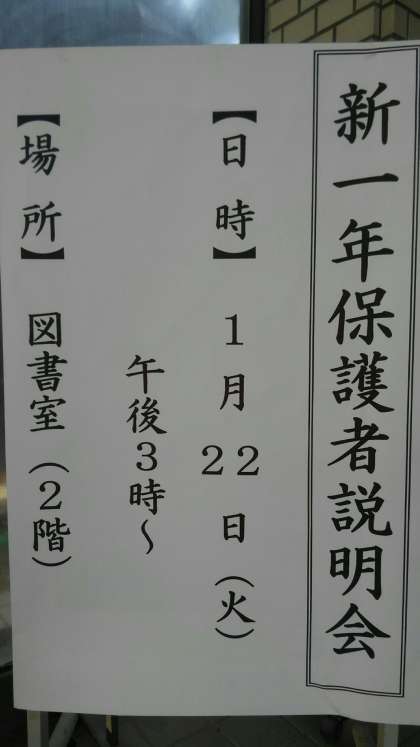 新一年保護者説明会
【日時】 1月22日(火)
午後3時~
【場所】 図書室(2階)